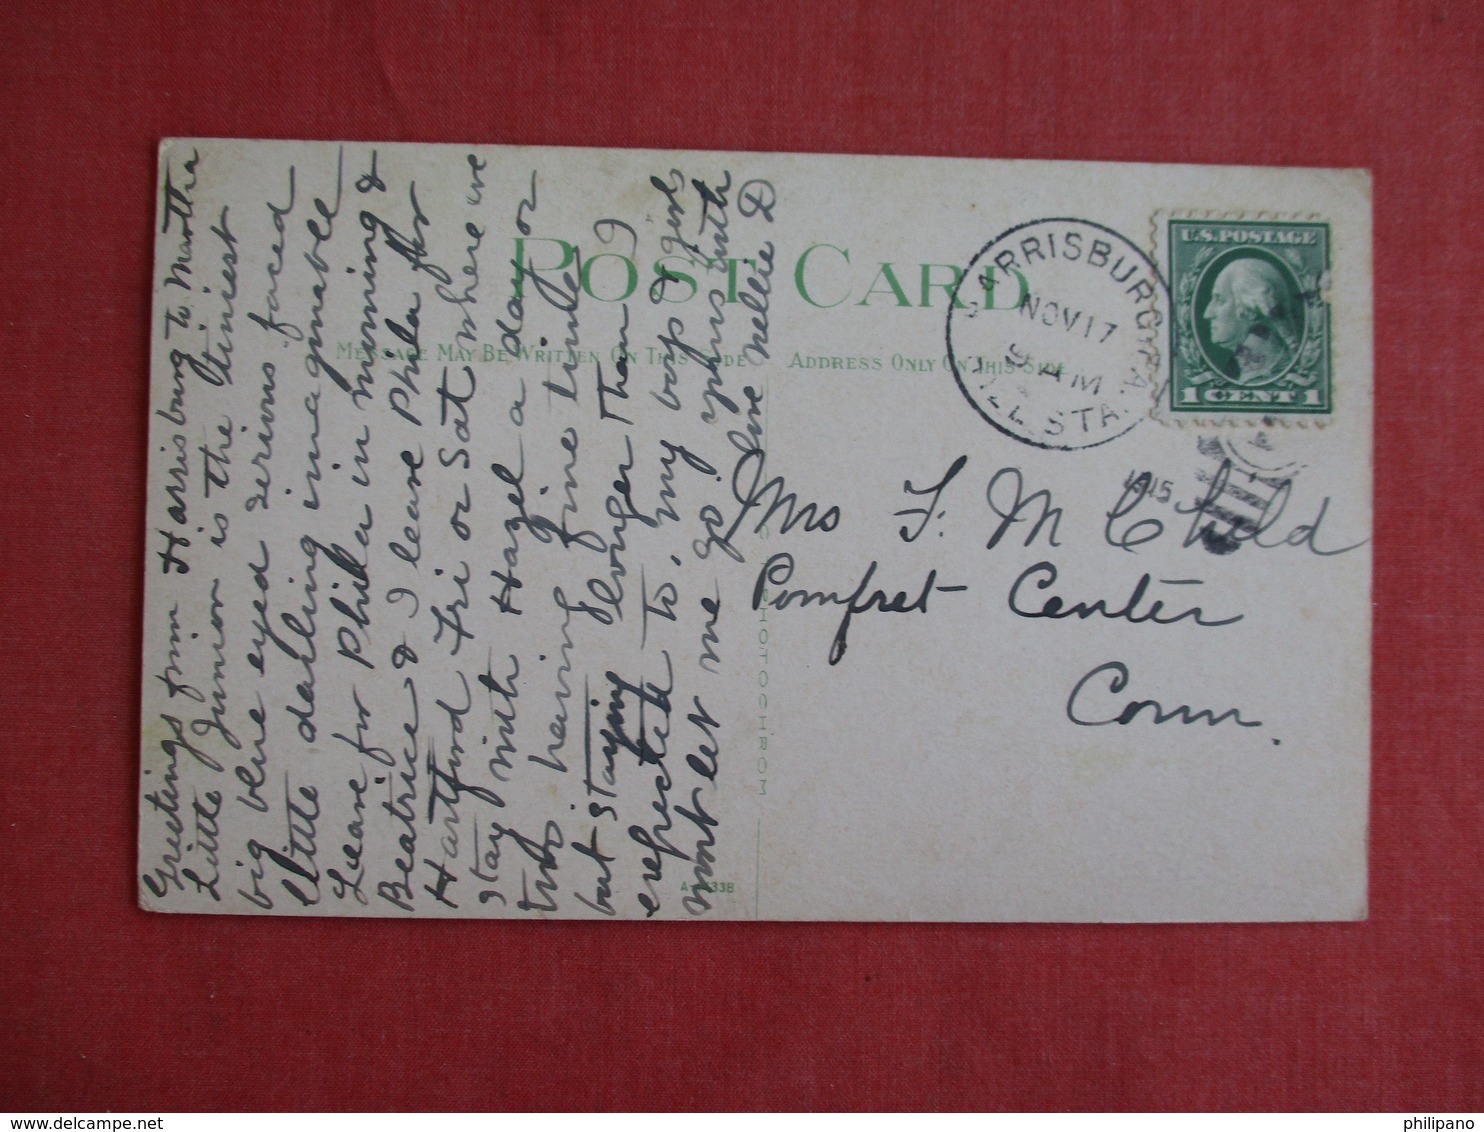 Greetings from Harrisburg to Martha
Little Junion is the tiniest
big blue eyed serious faced
little darling imaginable
Leave for Phila in morning &
Beatrice & I leave Phila for
Hartford Fri or Sat where we
stay with Hazel a day or
two. having fine time
but staying longer than I
expected to, my boys & girls
wont let me go.
Love Nellie D
POST CARD
MESSAGE MAY BE WRITTEN ON THIS SIDE
ADDRESS ONLY ON THIS SIDE
HARRISBURG, PA.
NOV 17
9 AM
HILL STA.
1915
U.S. POSTAGE
1 CENT 1
Mrs F. M Child
Pomfret Center
Conn.
PHOTOCHROM
philipano